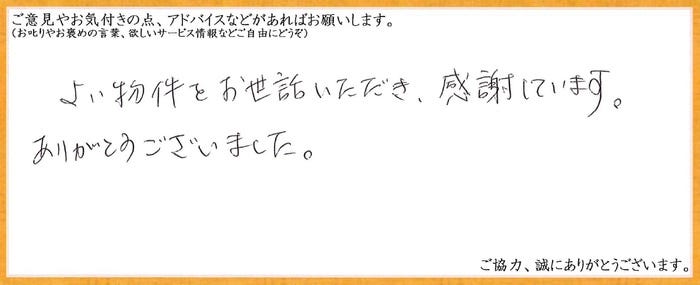 ご意見やお気付きの点、アドバイスなどがあればお願いします。
(お叱りやお褒めの言葉、欲しいサービス情報などご自由にどうぞ)
よい物件をお世話いただき、感謝しています。
ありがとのございました。
ご協力、誠にありがとうございます。